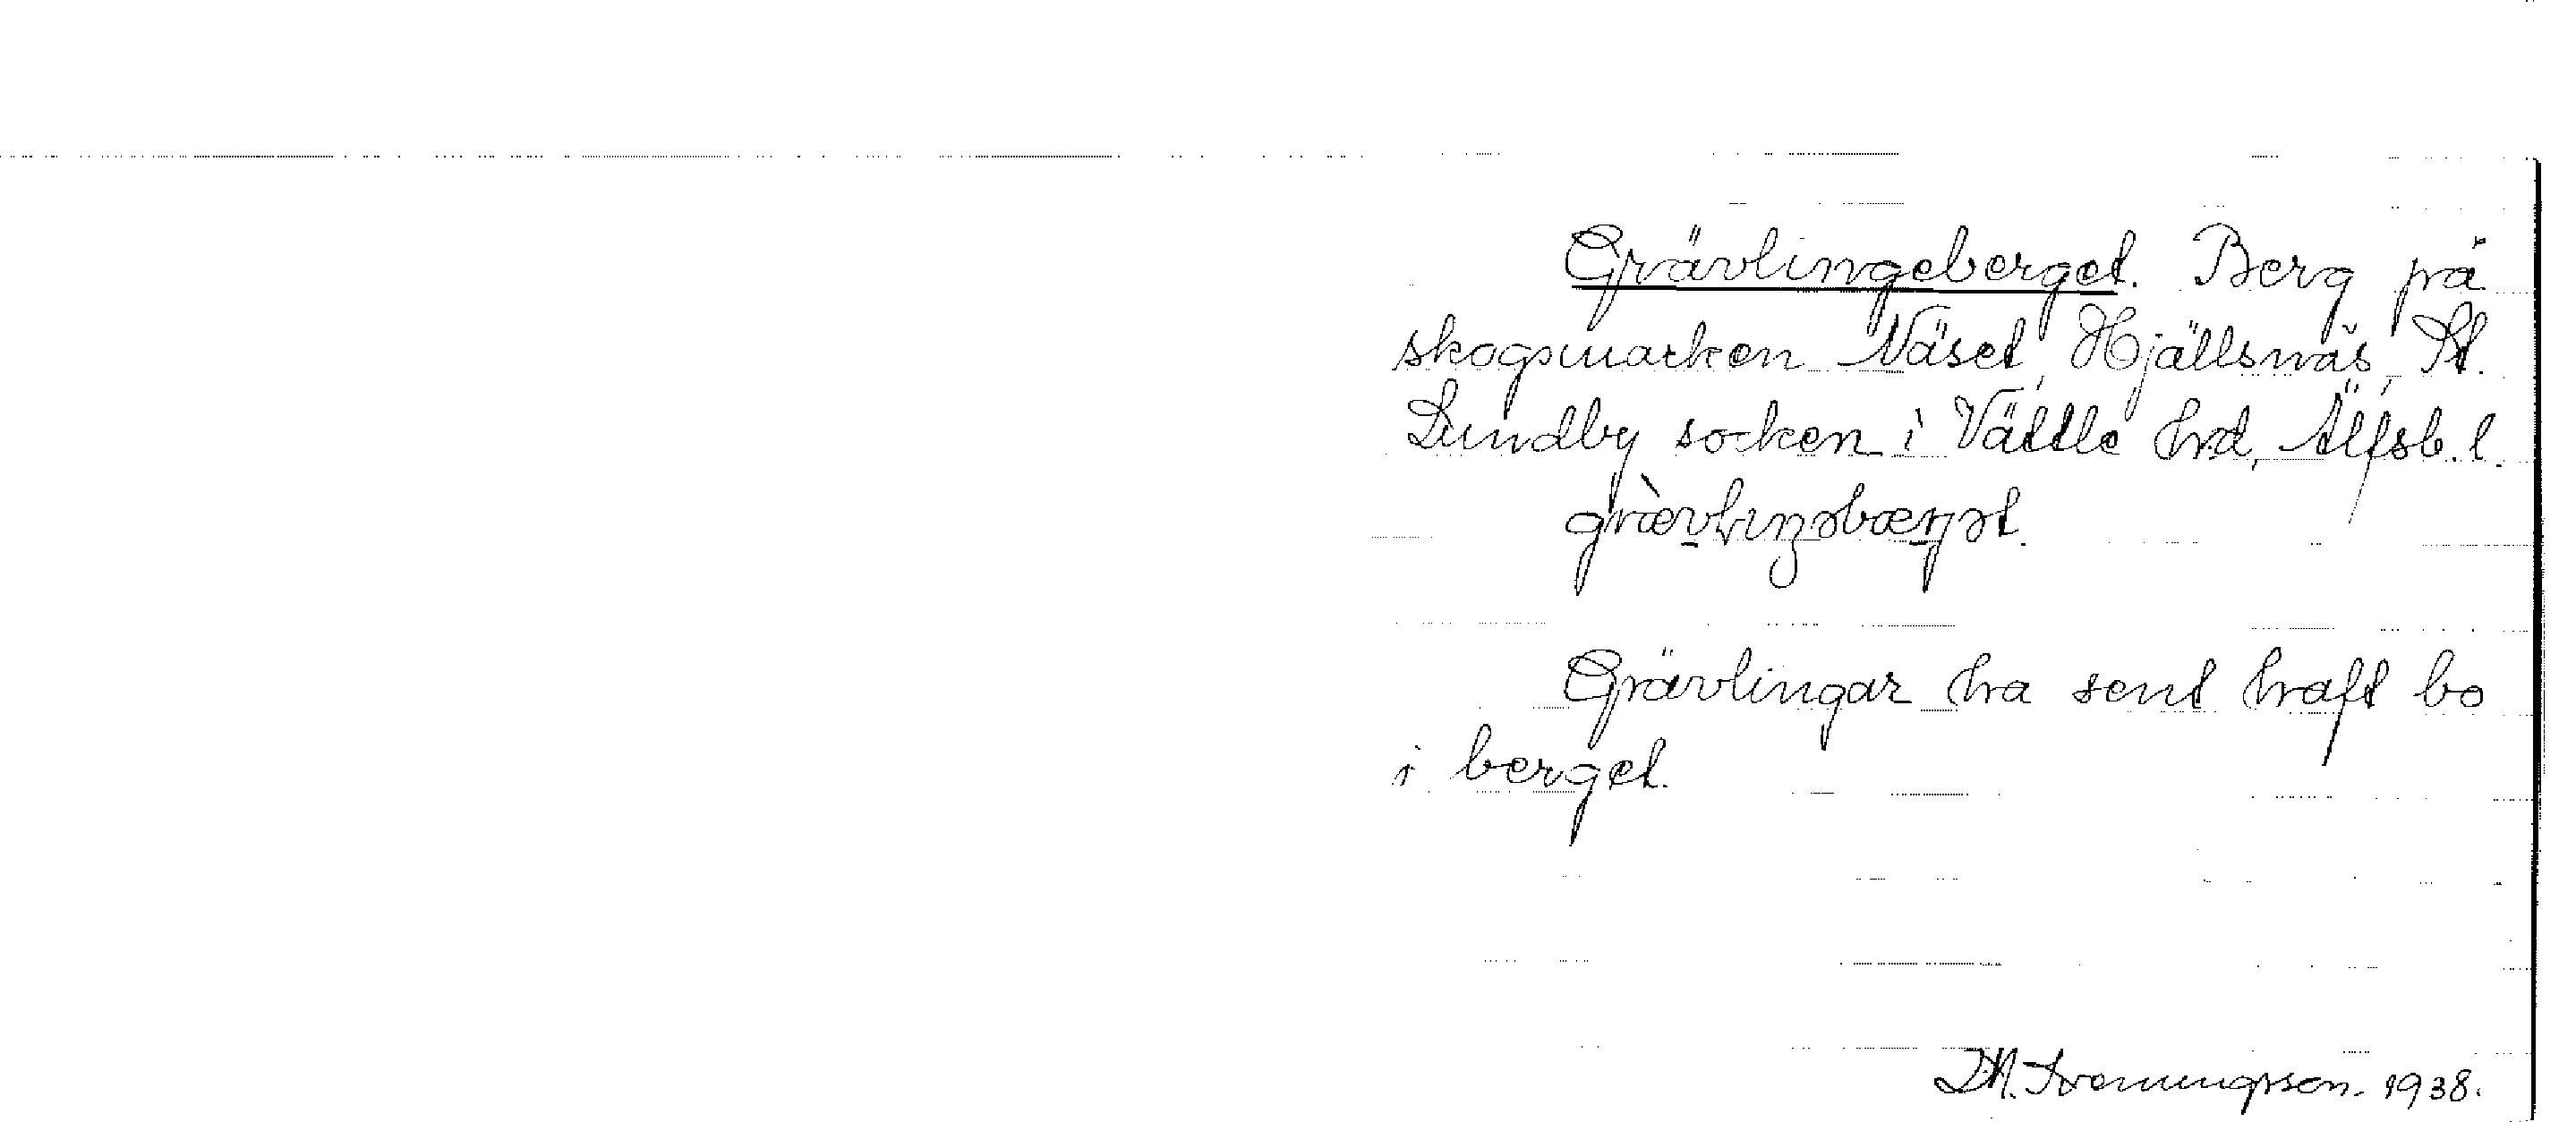 Grävlingeberget. Berg på
skogsmarken Näset, Hjällsnäs, St.
Lundby socken i Vättle hd, Älfsb. l.
grὰvlıŋəbærjət.
Grävlingar ha sent haft bo
i berget.
Svenungsson. 1938.